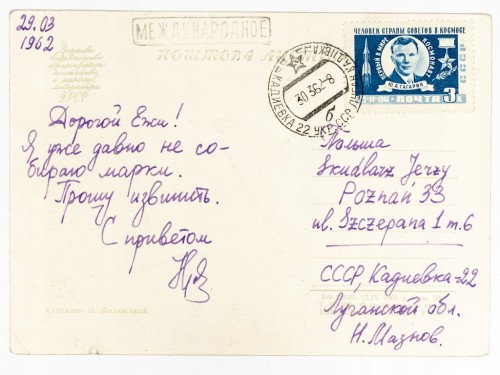 29.03
1962
МЕЖДУНАРОДНОЕ
ПОШТОВА
ЧЕЛОВЕК СТРАНЫ СОВЕТОВ В КОСМОСЕ
ПЕРВЫЙ В МИРЕ
КОСМОНАВТ
Ю.А.ГАГАРИН
12-IV-1961
ПОЧТА 3К
СССР
КАДИЕВКА 22 УКР.ССР
30.3.62-8
б
Дорогой Ежи!
Я уже давно не со-
бираю марки.
Прошу извинить.
С приветом
Польша
Skudlarz Jerzy
Poznań 33
ul. Szczepana 1 m. 6
СССР, Кадиевка-22
Луганской обл.
Н. Мазнов.